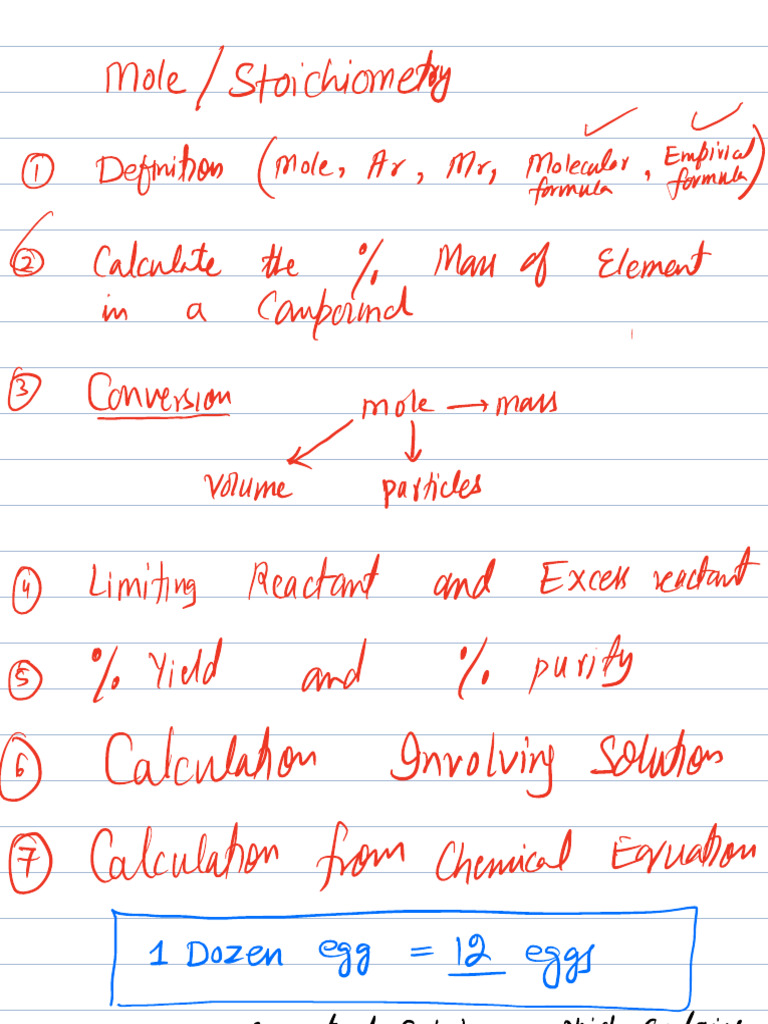 Mole / Stoichiometry
① Definition (Mole, Ar, Mr, Molecular formula, Empirical formula)
② Calculate the % Mass of Element
in a Compound
③ Conversion mole → mass
volume particles
④ Limiting Reactant and Excess reactant
⑤ % Yield and % purity
⑥ Calculation Involving Solution
⑦ Calculation from Chemical Equation
1 Dozen egg = 12 eggs